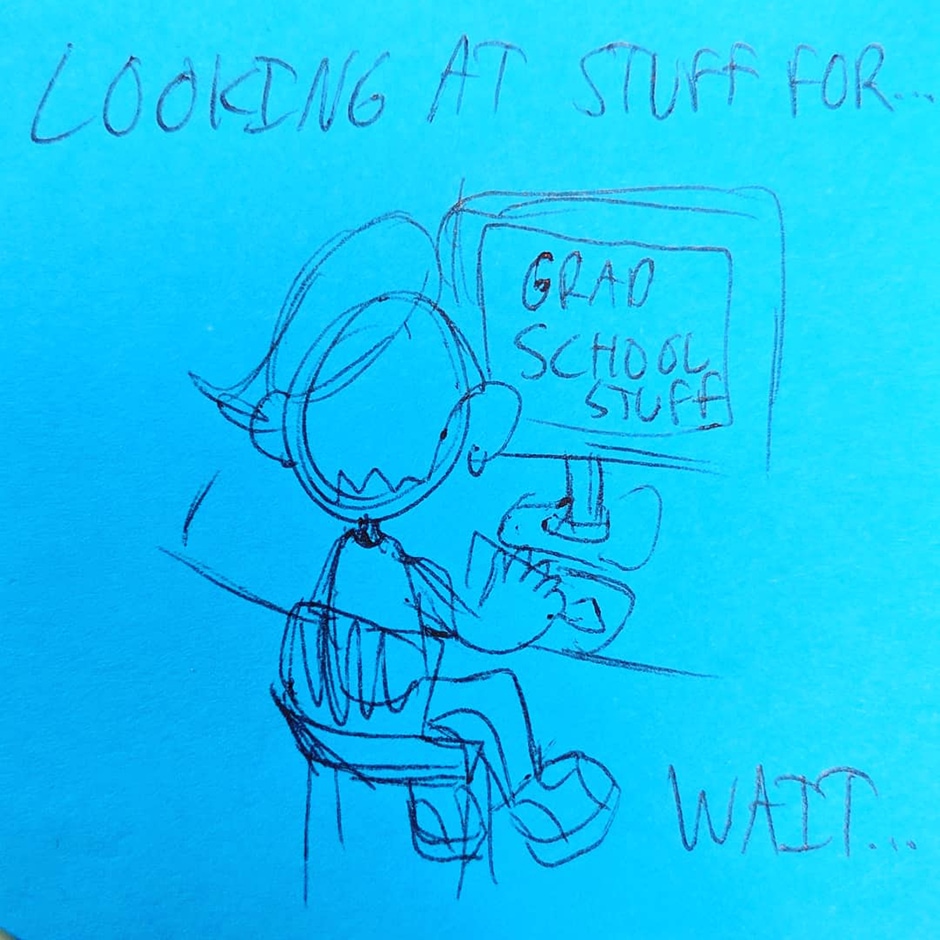 LOOKING AT STUFF FOR...
GRAD
SCHOOL
STUFF
WAIT...